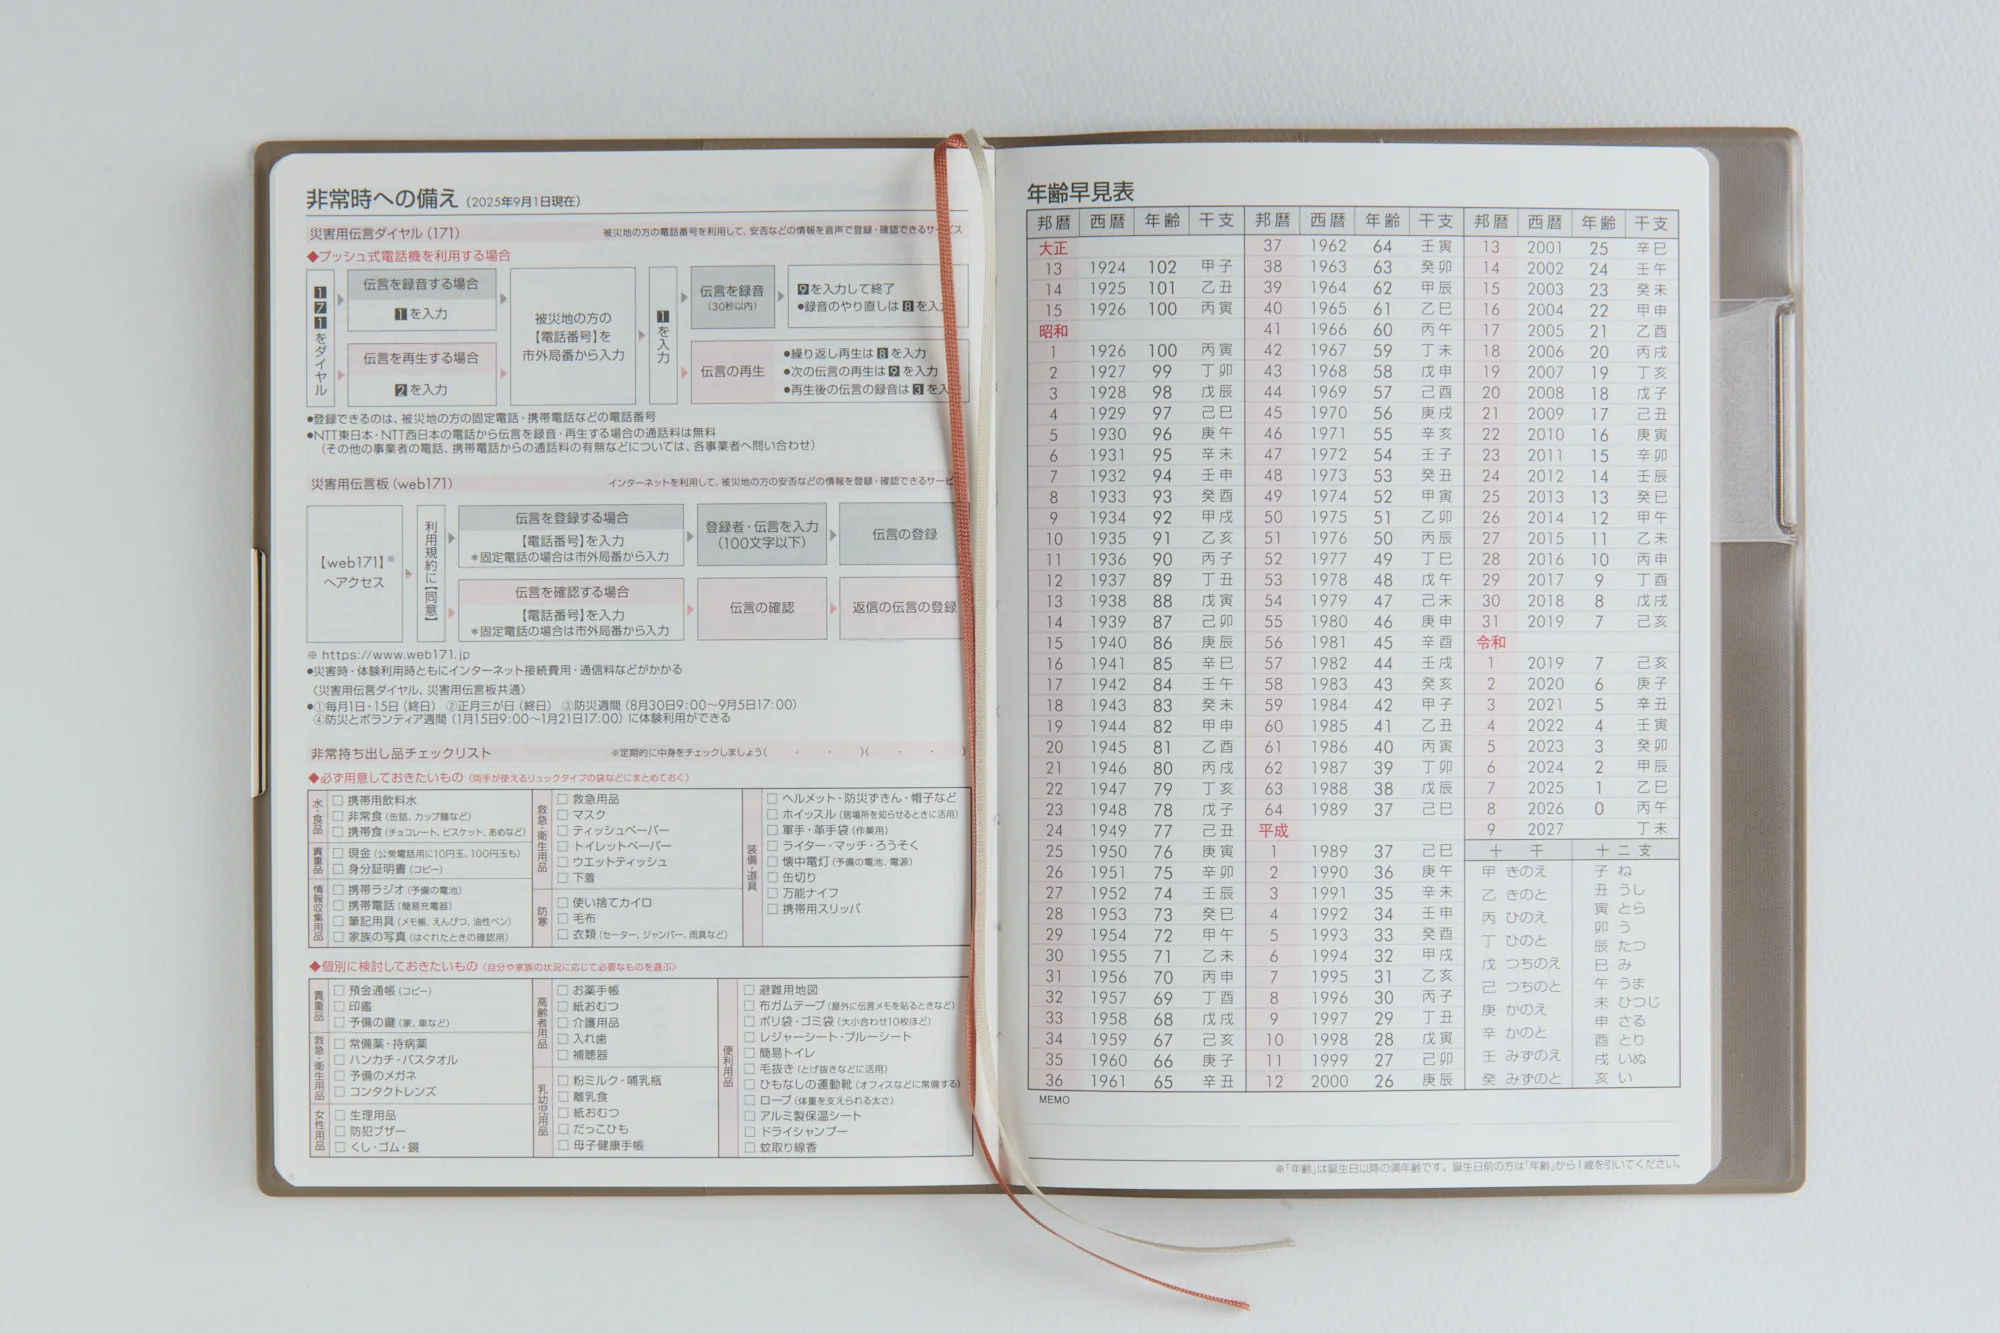 非常時への備え (2025年9月1日現在)
災害用伝言ダイヤル (171) 被災地の方の電話番号を利用して、安否などの情報を音声で登録・確認できるサービス
◆プッシュ式電話機を利用する場合
171をダイヤル
伝言を録音する場合
1を入力
伝言を再生する場合
2を入力
被災地の方の
【電話番号】を
市外局番から入力
1を入力
伝言を録音
(30秒以内)
9を入力して終了
●録音のやり直しは8を入
伝言の再生
●繰り返し再生は8を入力
●次の伝言の再生は9を入力
●再生後の伝言の録音は3を入
●登録できるのは、被災地の方の固定電話・携帯電話などの電話番号
●NTT東日本・NTT西日本の電話から伝言を録音・再生する場合の通話料は無料
(その他の事業者の電話、携帯電話からの通話料の有無などについては、各事業者へ問い合わせ)
災害用伝言板 (web171) インターネットを利用して、被災地の方の安否などの情報を登録・確認できるサービ
【web171】※
へアクセス
利用規約に【同意】
伝言を登録する場合
【電話番号】を入力
*固定電話の場合は市外局番から入力
登録者・伝言を入力
(100文字以下)
伝言の登録
伝言を確認する場合
【電話番号】を入力
*固定電話の場合は市外局番から入力
伝言の確認
返信の伝言の登録
※ https://www.web171.jp
●災害時・体験利用時ともにインターネット接続費用・通信料などがかかる
〈災害用伝言ダイヤル、災害用伝言板共通〉
●①毎月1日・15日 (終日) ②正月三が日 (終日) ③防災週間 (8月30日9:00〜9月5日17:00)
④防災とボランティア週間 (1月15日9:00〜1月21日17:00) に体験利用ができる
非常持ち出し品チェックリスト ※定期的に中身をチェックしましょう( ・ ・ )( ・ ・ )
◆必ず用意しておきたいもの 〈両手が使えるリュックタイプの袋などにまとめておく〉
水・食品
□ 携帯用飲料水
□ 非常食 (缶詰、カップ麺など)
□ 携帯食 (チョコレート、ビスケット、あめなど)
貴重品
□ 現金 (公衆電話用に10円玉、100円玉も)
□ 身分証明書 (コピー)
情報収集用品
□ 携帯ラジオ (予備の電池)
□ 携帯電話 (簡易充電器)
□ 筆記用具 (メモ帳、えんぴつ、油性ペン)
□ 家族の写真 (はぐれたときの確認用)
救急・衛生用品
□ 救急用品
□ マスク
□ ティッシュペーパー
□ トイレットペーパー
□ ウエットティッシュ
□ 下着
防寒
□ 使い捨てカイロ
□ 毛布
□ 衣類 (セーター、ジャンパー、雨具など)
装備・道具
□ ヘルメット・防災ずきん・帽子など
□ ホイッスル (居場所を知らせるときに活用)
□ 軍手・革手袋 (作業用)
□ ライター・マッチ・ろうそく
□ 懐中電灯 (予備の電池、電源)
□ 缶切り
□ 万能ナイフ
□ 携帯用スリッパ
◆個別に検討しておきたいもの 〈自分や家族の状況に応じて必要なものを選ぶ〉
貴重品
□ 預金通帳 (コピー)
□ 印鑑
□ 予備の鍵 (家、車など)
救急・衛生用品
□ 常備薬・持病薬
□ ハンカチ・バスタオル
□ 予備のメガネ
□ コンタクトレンズ
女性用品
□ 生理用品
□ 防犯ブザー
□ くし・ゴム・鏡
高齢者用品
□ お薬手帳
□ 紙おむつ
□ 介護用品
□ 入れ歯
□ 補聴器
乳幼児用品
□ 粉ミルク・哺乳瓶
□ 離乳食
□ 紙おむつ
□ だっこひも
□ 母子健康手帳
便利用品
□ 避難用地図
□ 布ガムテープ (屋外に伝言メモを貼るときなど)
□ ポリ袋・ゴミ袋 (大小合わせ10枚ほど)
□ レジャーシート・ブルーシート
□ 簡易トイレ
□ 毛抜き (とげ抜きなどに活用)
□ ひもなしの運動靴 (オフィスなどに常備する)
□ ロープ (体重を支えられる太さ)
□ アルミ製保温シート
□ ドライシャンプー
□ 蚊取り線香
年齢早見表
邦暦 西暦 年齢 干支
大正
13 1924 102 甲子
14 1925 101 乙丑
15 1926 100 丙寅
昭和
1 1926 100 丙寅
2 1927 99 丁卯
3 1928 98 戊辰
4 1929 97 己巳
5 1930 96 庚午
6 1931 95 辛未
7 1932 94 壬申
8 1933 93 癸酉
9 1934 92 甲戌
10 1935 91 乙亥
11 1936 90 丙子
12 1937 89 丁丑
13 1938 88 戊寅
14 1939 87 己卯
15 1940 86 庚辰
16 1941 85 辛巳
17 1942 84 壬午
18 1943 83 癸未
19 1944 82 甲申
20 1945 81 乙酉
21 1946 80 丙戌
22 1947 79 丁亥
23 1948 78 戊子
24 1949 77 己丑
25 1950 76 庚寅
26 1951 75 辛卯
27 1952 74 壬辰
28 1953 73 癸巳
29 1954 72 甲午
30 1955 71 乙未
31 1956 70 丙申
32 1957 69 丁酉
33 1958 68 戊戌
34 1959 67 己亥
35 1960 66 庚子
36 1961 65 辛丑
邦暦 西暦 年齢 干支
37 1962 64 壬寅
38 1963 63 癸卯
39 1964 62 甲辰
40 1965 61 乙巳
41 1966 60 丙午
42 1967 59 丁未
43 1968 58 戊申
44 1969 57 己酉
45 1970 56 庚戌
46 1971 55 辛亥
47 1972 54 壬子
48 1973 53 癸丑
49 1974 52 甲寅
50 1975 51 乙卯
51 1976 50 丙辰
52 1977 49 丁巳
53 1978 48 戊午
54 1979 47 己未
55 1980 46 庚申
56 1981 45 辛酉
57 1982 44 壬戌
58 1983 43 癸亥
59 1984 42 甲子
60 1985 41 乙丑
61 1986 40 丙寅
62 1987 39 丁卯
63 1988 38 戊辰
64 1989 37 己巳
平成
1 1989 37 己巳
2 1990 36 庚午
3 1991 35 辛未
4 1992 34 壬申
5 1993 33 癸酉
6 1994 32 甲戌
7 1995 31 乙亥
8 1996 30 丙子
9 1997 29 丁丑
10 1998 28 戊寅
11 1999 27 己卯
12 2000 26 庚辰
邦暦 西暦 年齢 干支
13 2001 25 辛巳
14 2002 24 壬午
15 2003 23 癸未
16 2004 22 甲申
17 2005 21 乙酉
18 2006 20 丙戌
19 2007 19 丁亥
20 2008 18 戊子
21 2009 17 己丑
22 2010 16 庚寅
23 2011 15 辛卯
24 2012 14 壬辰
25 2013 13 癸巳
26 2014 12 甲午
27 2015 11 乙未
28 2016 10 丙申
29 2017 9 丁酉
30 2018 8 戊戌
31 2019 7 己亥
令和
1 2019 7 己亥
2 2020 6 庚子
3 2021 5 辛丑
4 2022 4 壬寅
5 2023 3 癸卯
6 2024 2 甲辰
7 2025 1 乙巳
8 2026 0 丙午
9 2027 丁未
十干
甲 きのえ
乙 きのと
丙 ひのえ
丁 ひのと
戊 つちのえ
己 つちのと
庚 かのえ
辛 かのと
壬 みずのえ
癸 みずのと
十二支
子 ね
丑 うし
寅 とら
卯 う
辰 たつ
巳 み
午 うま
未 ひつじ
申 さる
酉 とり
戌 いぬ
亥 い
MEMO
※「年齢」は誕生日以降の満年齢です。誕生日前の方は「年齢」から1歳を引いてください。